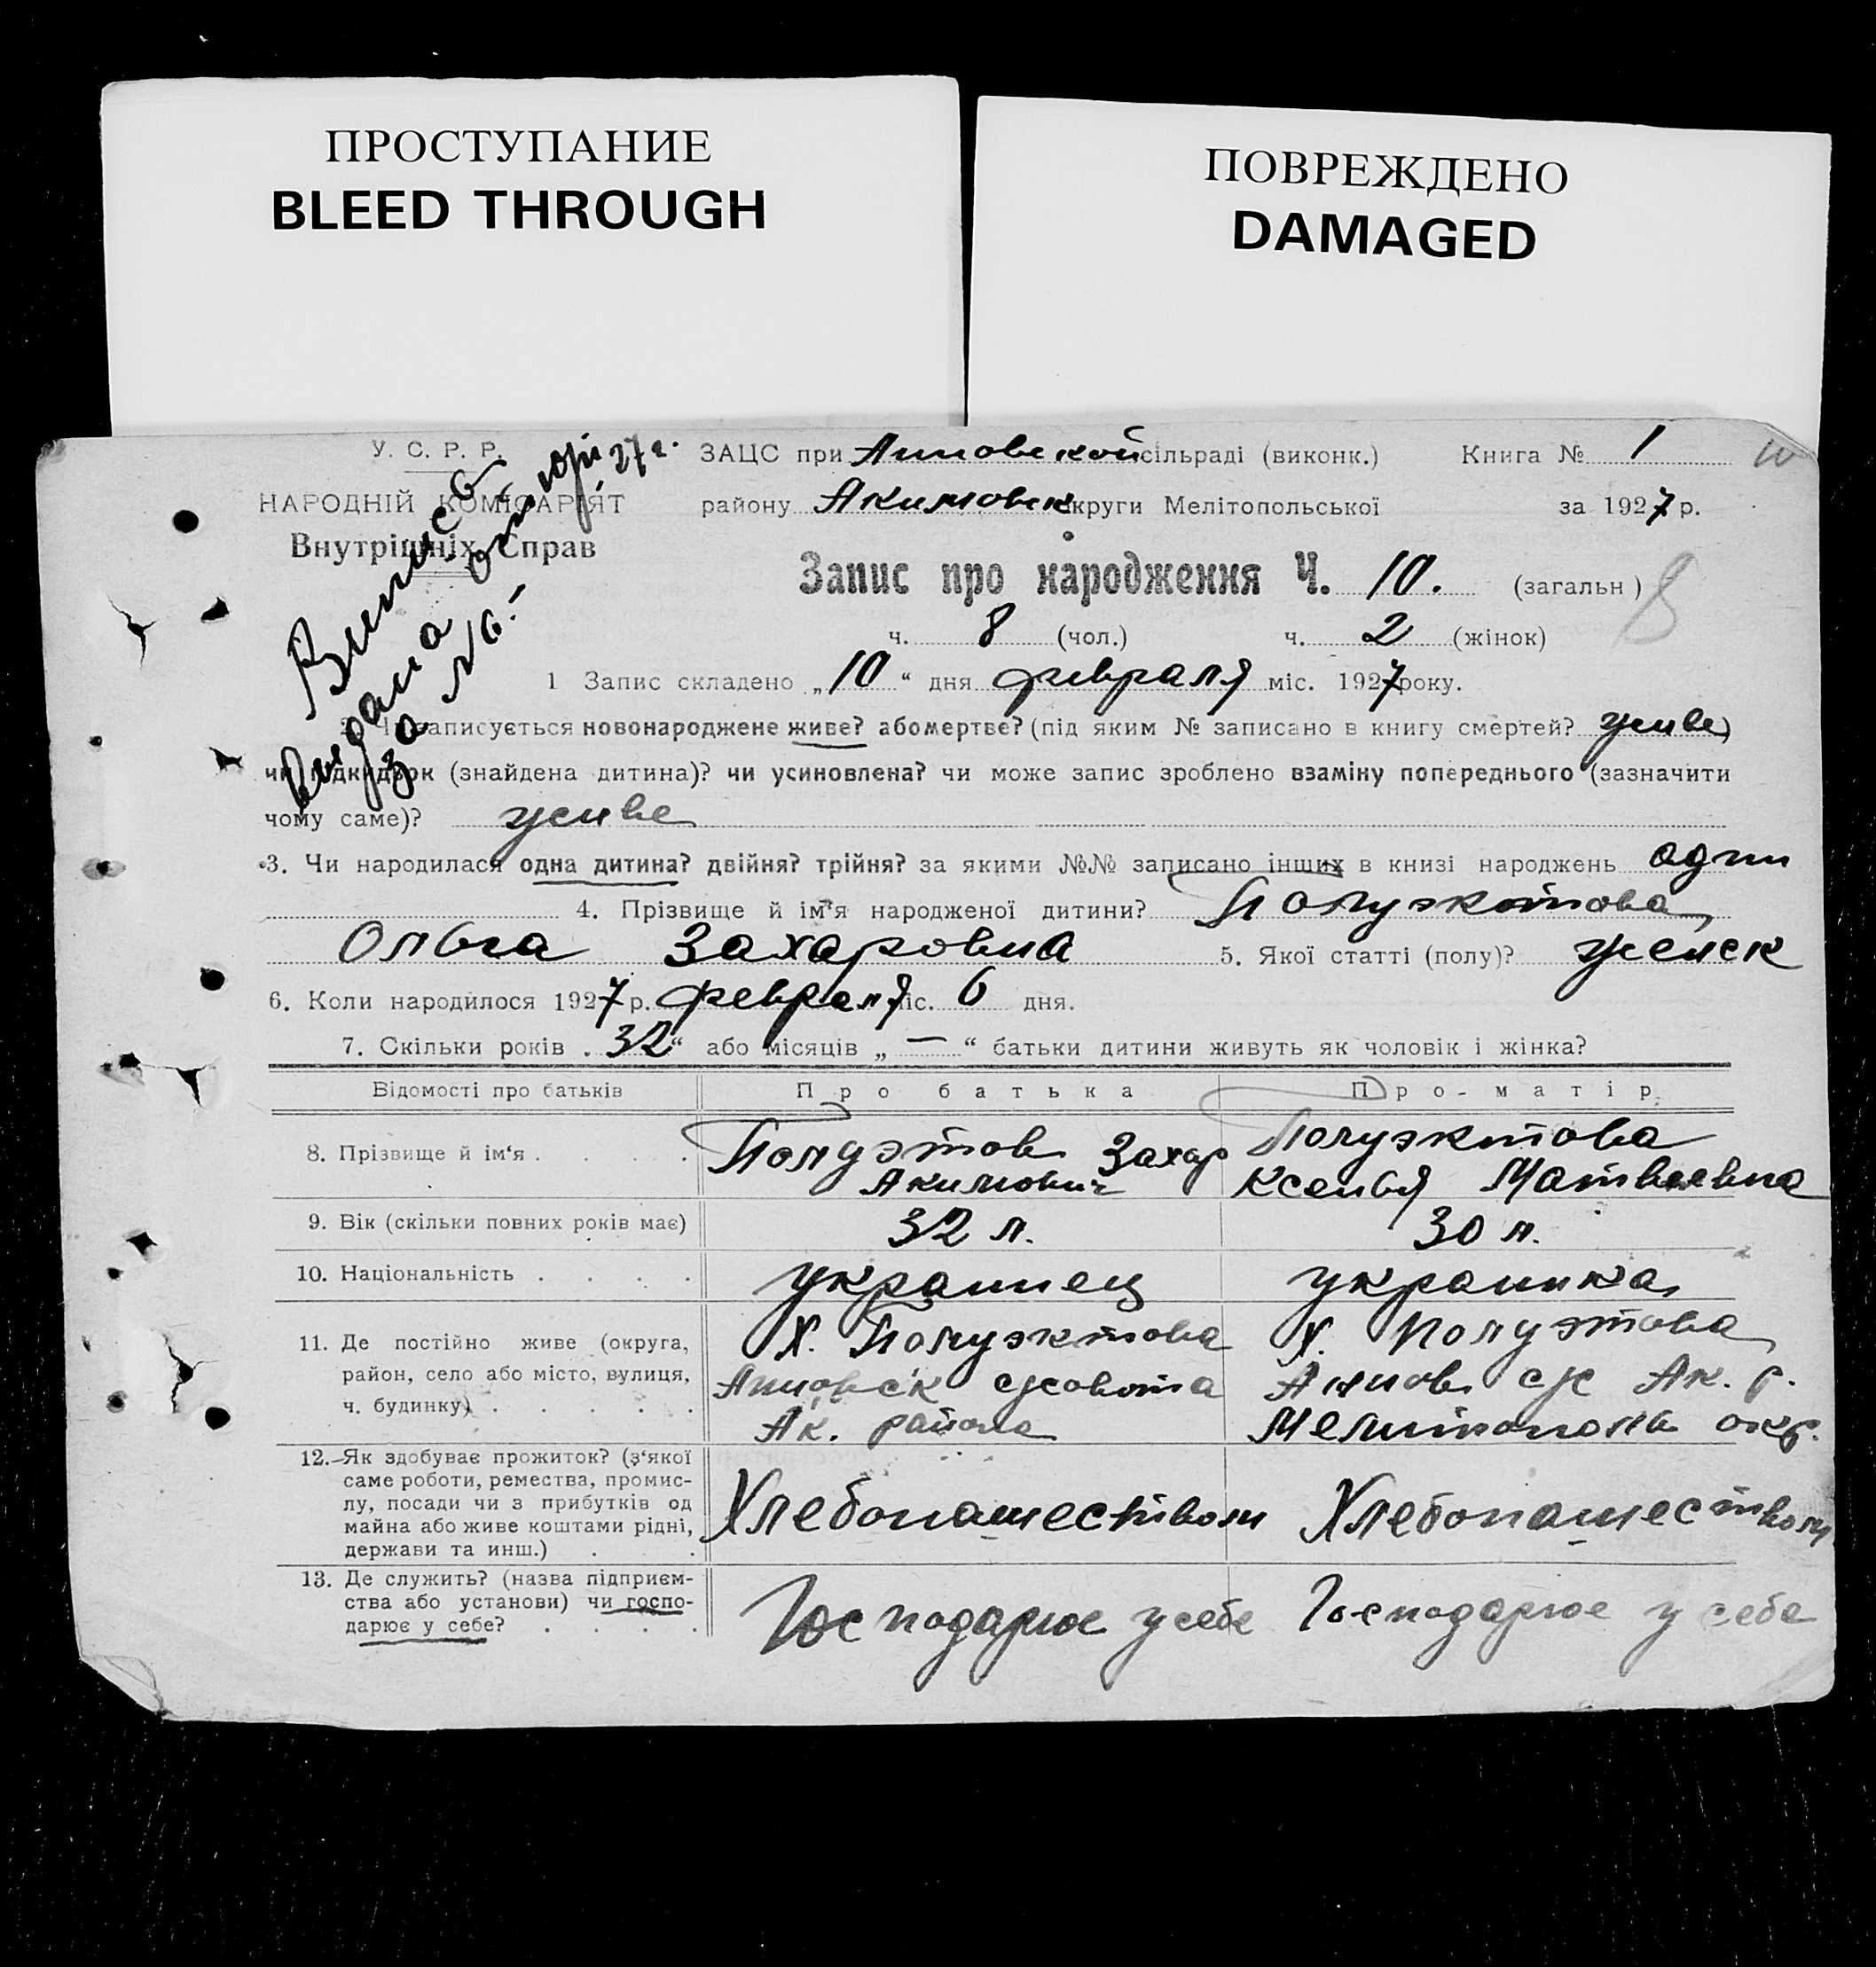 ПРОСТУПАНИЕ
BLEED THROUGH
ПОВРЕЖДЕНО
DAMAGED
У. С. Р. Р.
НАРОДНІЙ КОМІСАРІЯТ
Внутрішніх Справ
Выпись
выдана
за № 6.
27 г.
ЗАЦС при Анновской сільраді (виконк.) Книга № 1
району Акимовск округи Мелітопольської за 1927 р.
Запис про народження Ч. 10. (загальн)
8
ч. 8 (чол.) ч. 2 (жінок)
1 Запис складено „10“ дня февраля міс. 1927 року.
2. Чи записується новонароджене живе? або мертве? (під яким № записано в книгу смертей? живе)
чи підкидьок (знайдена дитина)? чи усиновлена? чи може запис зроблено взаміну попереднього (зазначити
чому саме)? живе
3. Чи народилася одна дитина? двійня? трійня? за якими №№ записано інших в книзі народжень один
4. Прізвище й ім‘я народженої дитини? Полуэктова
Ольга Захаровна 5. Якої статті (полу)? женск
6. Коли народилося 1927 р. февраля міс. 6 дня.
7. Скільки років „32“ або місяців „—“ батьки дитини живуть як чоловік і жінка?
Відомості про батьків Про батька Про матір
8. Прізвище й ім‘я . . . . Полуэтов Захар Акимович Полуэктова Ксенья Матвеевна
9. Вік (скільки повних років має) 32 л. 30 л.
10. Національність . . . . украинец украинка
11. Де постійно живе (округа, район, село або місто, вулиця, ч. будинку) . . . . . Х. Полуэктова Анновск с/совета Ак. района Х. Полуэтова Аннов с/с Ак. р. Мелитополь окр.
12. Як здобуває прожиток? (з‘якої саме роботи, ремества, промислу, посади чи з прибутків од майна або живе коштами рідні, держави та инш.) . . Хлебопашеством Хлебопашеством
13. Де служить? (назва підприємства або установи) чи господарює у себе? . . . . Господарює у себе Господарює у себе